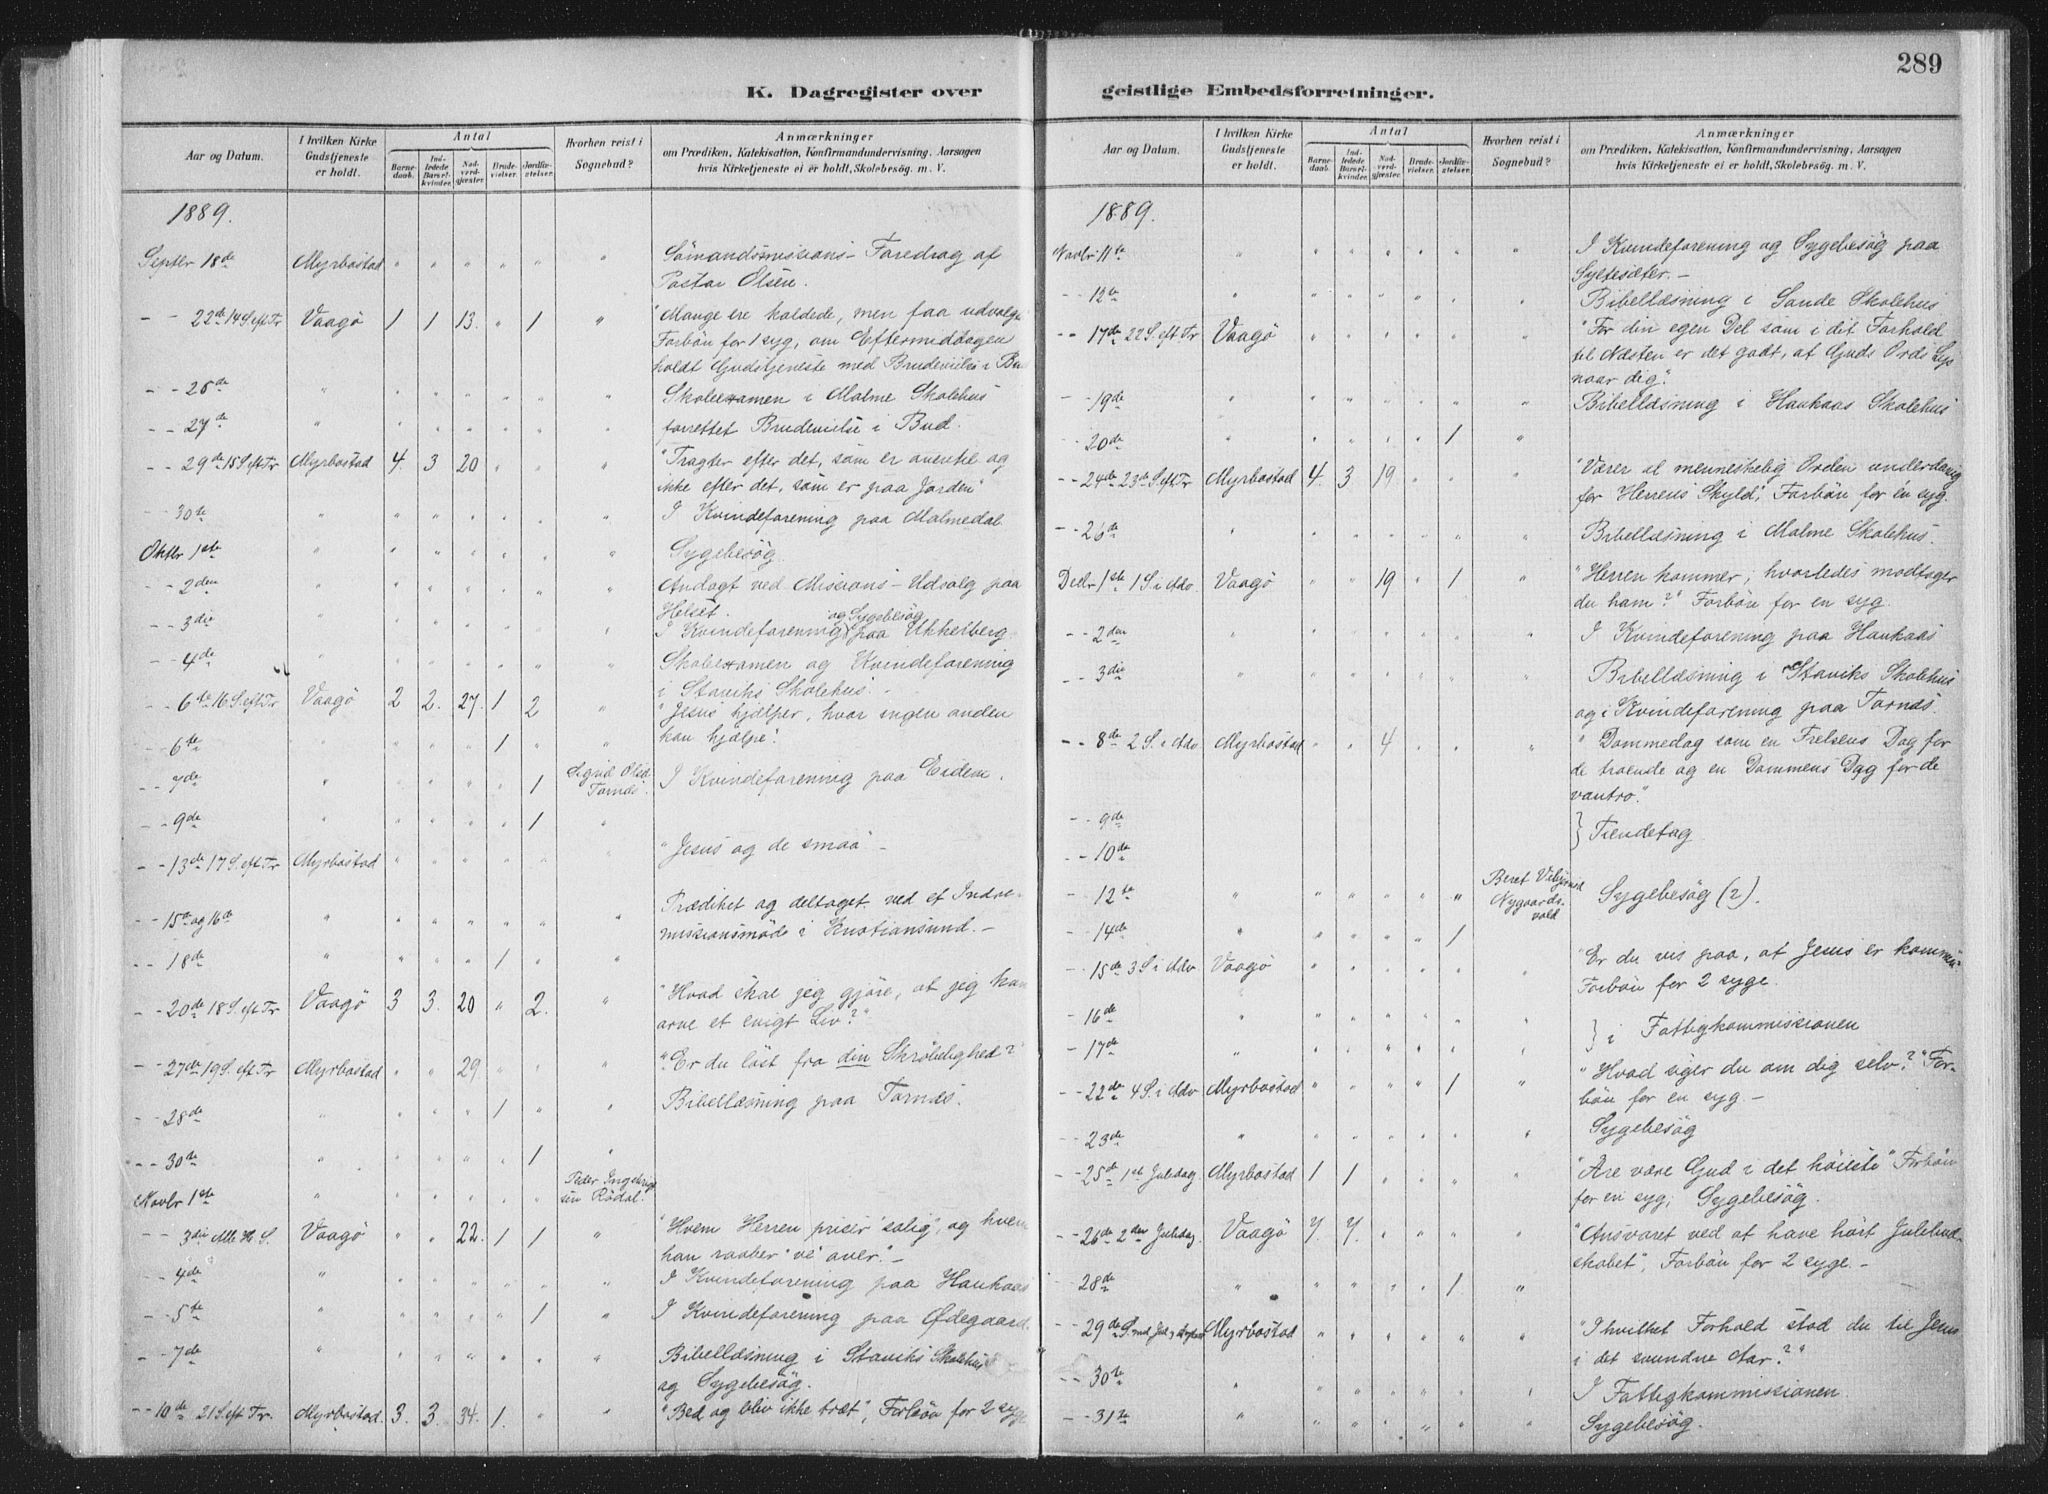 289
K. Dagregister over geistlige Embedsforretninger.
Aar og Datum. I hvilken Kirke Gudstjeneste er holdt. Antal Barnedaab. Indledede Barselkvinder. Nadverdgjester. Brudevielser. Jordfæstelser. Hvorhen reist i Sognebud? Anmærkninger om Prædiken, Katekisation, Konfirmandundervisning, Aarsagen hvis Kirketjeneste ei er holdt, Skolebesøg. m. V.
1889.
Septbr 18de Myrbostad " " " " " " Sömandsmissions-Foredrag af
Pastor Olsen.
- - 22de 14 S. eft Tr Vaagö 1 1 13. " 1 " "Mange ere kaldede, men faa udvalgte"
Forbön for 1 syg, om Eftermiddagen
holdt Gudstjeneste med Brudevielse i Bud
- - 25de " " " " " " " Skoleexamen i Malme Skolehus
- - 27de " " " " " " " forrettet Brudevielse i Bud.
- - 29de 15 S. eft Tr Myrbostad 4. 3 20 " " " "Tragter efter det, som er oventil og
ikke efter det, som er paa Jorden"
- - 30te " " " " " " " I Kvindeforening paa Malmedal
Oktbr 1ste " " " " " " " Sygebesög
- - 2den " " " " " " " Andagt ved Missions-Udsalg paa
Helset.
- - 3die " " " " " " " I Kvindeforening og Sygebesög paa Ukkelberg
- - 4de " " " " " " " Skoleexamen og Kvindeforening
i Staviks Skolehus. -
- - 6te 16 S. eft Tr Vaagö 2 2. 27. 1 2 " "Jesus hjælper, hvor ingen anden
kan hjælpe".
- - 6te " " " " 1 " "
- - 7de " " " " " 1 Sigrid Olsd. Tornæs. I Kvindeforening paa Eidem.
- - 9de " " " " " 1 "
- - 13de 17 S. eft Tr Myrbostad " " " " " " "Jesus og de smaa" -
- - 15de og 16de " " " " " " " Prædiket og deltaget ved et Indre-
missionsmöde i Kristiansund. -
- - 18de " " " " 1 " "
- - 20de 18 S. eft Tr Vaagö 3 3. 20 " 2. " "Hvad skal jeg gjöre, at jeg kan
arve et evigt Liv?"
- - 27de 19 S. eft Tr Myrbostad " " 29. " " " "Er du löst fra din Skröbelighed?"
- - 28de " " " " 1 " " Bibellæsning paa Tornæs.
- - 30te " " " " " 1 "
Novbr 1ste " " " " " " Peder Ingebrigtsen Rödal.
- - 3die Alle H. S. Vaagö " " 22. 1 1 " "Hvem Herren priser "salig", og hvem
han raaber "ve" over." -
- - 4de " " " " " " " I Kvindeforening paa Haukaas
- - 5te " " " " " 1 " I Kvindeforening paa Ødegaard
- - 7de " " " " " " " Bibellæsning i Staviks Skolehus
og Sygebesög.
- - 10de 21 S. eft Tr. Myrbostad. 3. 3. 34. 1. " " "Bed og bliv ikke træt", Forbön for 2 syge
Aar og Datum. I hvilken Kirke Gudstjeneste er holdt. Antal Barnedaab. Indledede Barselkvinder. Nadverdgjester. Brudevielser. Jordfæstelser. Hvorhen reist i Sognebud? Anmærkninger om Prædiken, Katekisation, Konfirmandundervisning, Aarsagen hvis Kirketjeneste ei er holdt, Skolebesøg. m. V.
1889.
Novbr 11te " " " " " " " I Kvindeforening og Sygebesög paa
Syltesæter. -
- - 12te " " " " " " " Bibellæsning i Sande Skolehus
- - 17de 22 S. eft Tr Vaagö " " " " " " "For din egen Del som i dit Forhold
til Næsten er det godt, at Guds Ords Lys
naar dig".
- - 19de " " " " " " " Bibellæsning i Haukaas Skolehus
- - 20de " " " " " 1 "
- - 24de 23de S. eft Tr Myrbostad 4. 3 19 " " " "Værer al menneskelig Orden underdanig
for Herrens Skyld", Forbön for en syg.
- - 26de " " " " " " " Bibellæsning i Malme Skolehus.
Decbr 1ste 1 S. i Adv. Vaagö " " 19 " 1 " "Herren kommer, hvorledes modtager
du ham?" Forbön for en syg.
- - 2den " " " " " " " I Kvindeforening paa Haukaas
- - 3die " " " " " " " Bibellæsning i Staviks Skolehus
og i Kvindeforening paa Tornæs.
- - 8de 2 S. i Adv Myrbostad " " 4 " " " "Dommedag som en Frelsens Dag for
de troende og en Dommens Dag for de
vantro."
- - 9de
- - 10de } Tiendetag
- - 12te " " " " " " Beret Nygaardsvold Sygebesög (2).
- - 14de " " " " " 1
- - 15de 3 S. i Adv Vaagö " " " " " " "Er du vis paa, at Jesus er kommen"
Forbön for 2 syge.
- - 16de " " " " " " "
- - 17de " " " " " " " } i Fattigkommissionen
- - 22de 4 S. i Adv Myrbostad " " " " 1 " "Hvad siger du om dig selv?" For-
bön for en syg -
- - 23de " " " " " " " Sygebesög
- - 25de 1ste Juledag Myrbostad 1 1 " " " " "Ære være Gud i det höieste" Forbön
for en syg, Sygebesög.
- - 26de 2den Juledag. Vaagö 7. 7. " " " " "Ansvaret ved at have hört Julebud-
skabet", Forbön for 2 syge. -
- - 28de " " " " " 1. "
- - 29de Myrbostad " " " " " " "I hvilket Forhold stod du til Jesus
i det svundne Aar?"
- - 30te " " " " " " " I Fattigkommissionen.
- - 31te " " " " " " " Sygebesög.